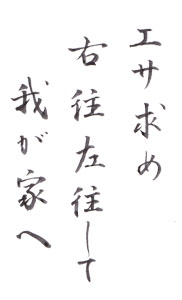 エサ求め
右往左往して
我が家へ